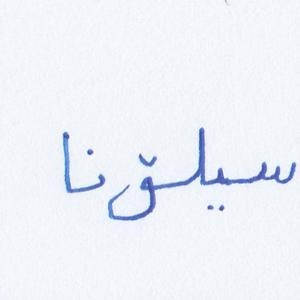 سیلۆنا